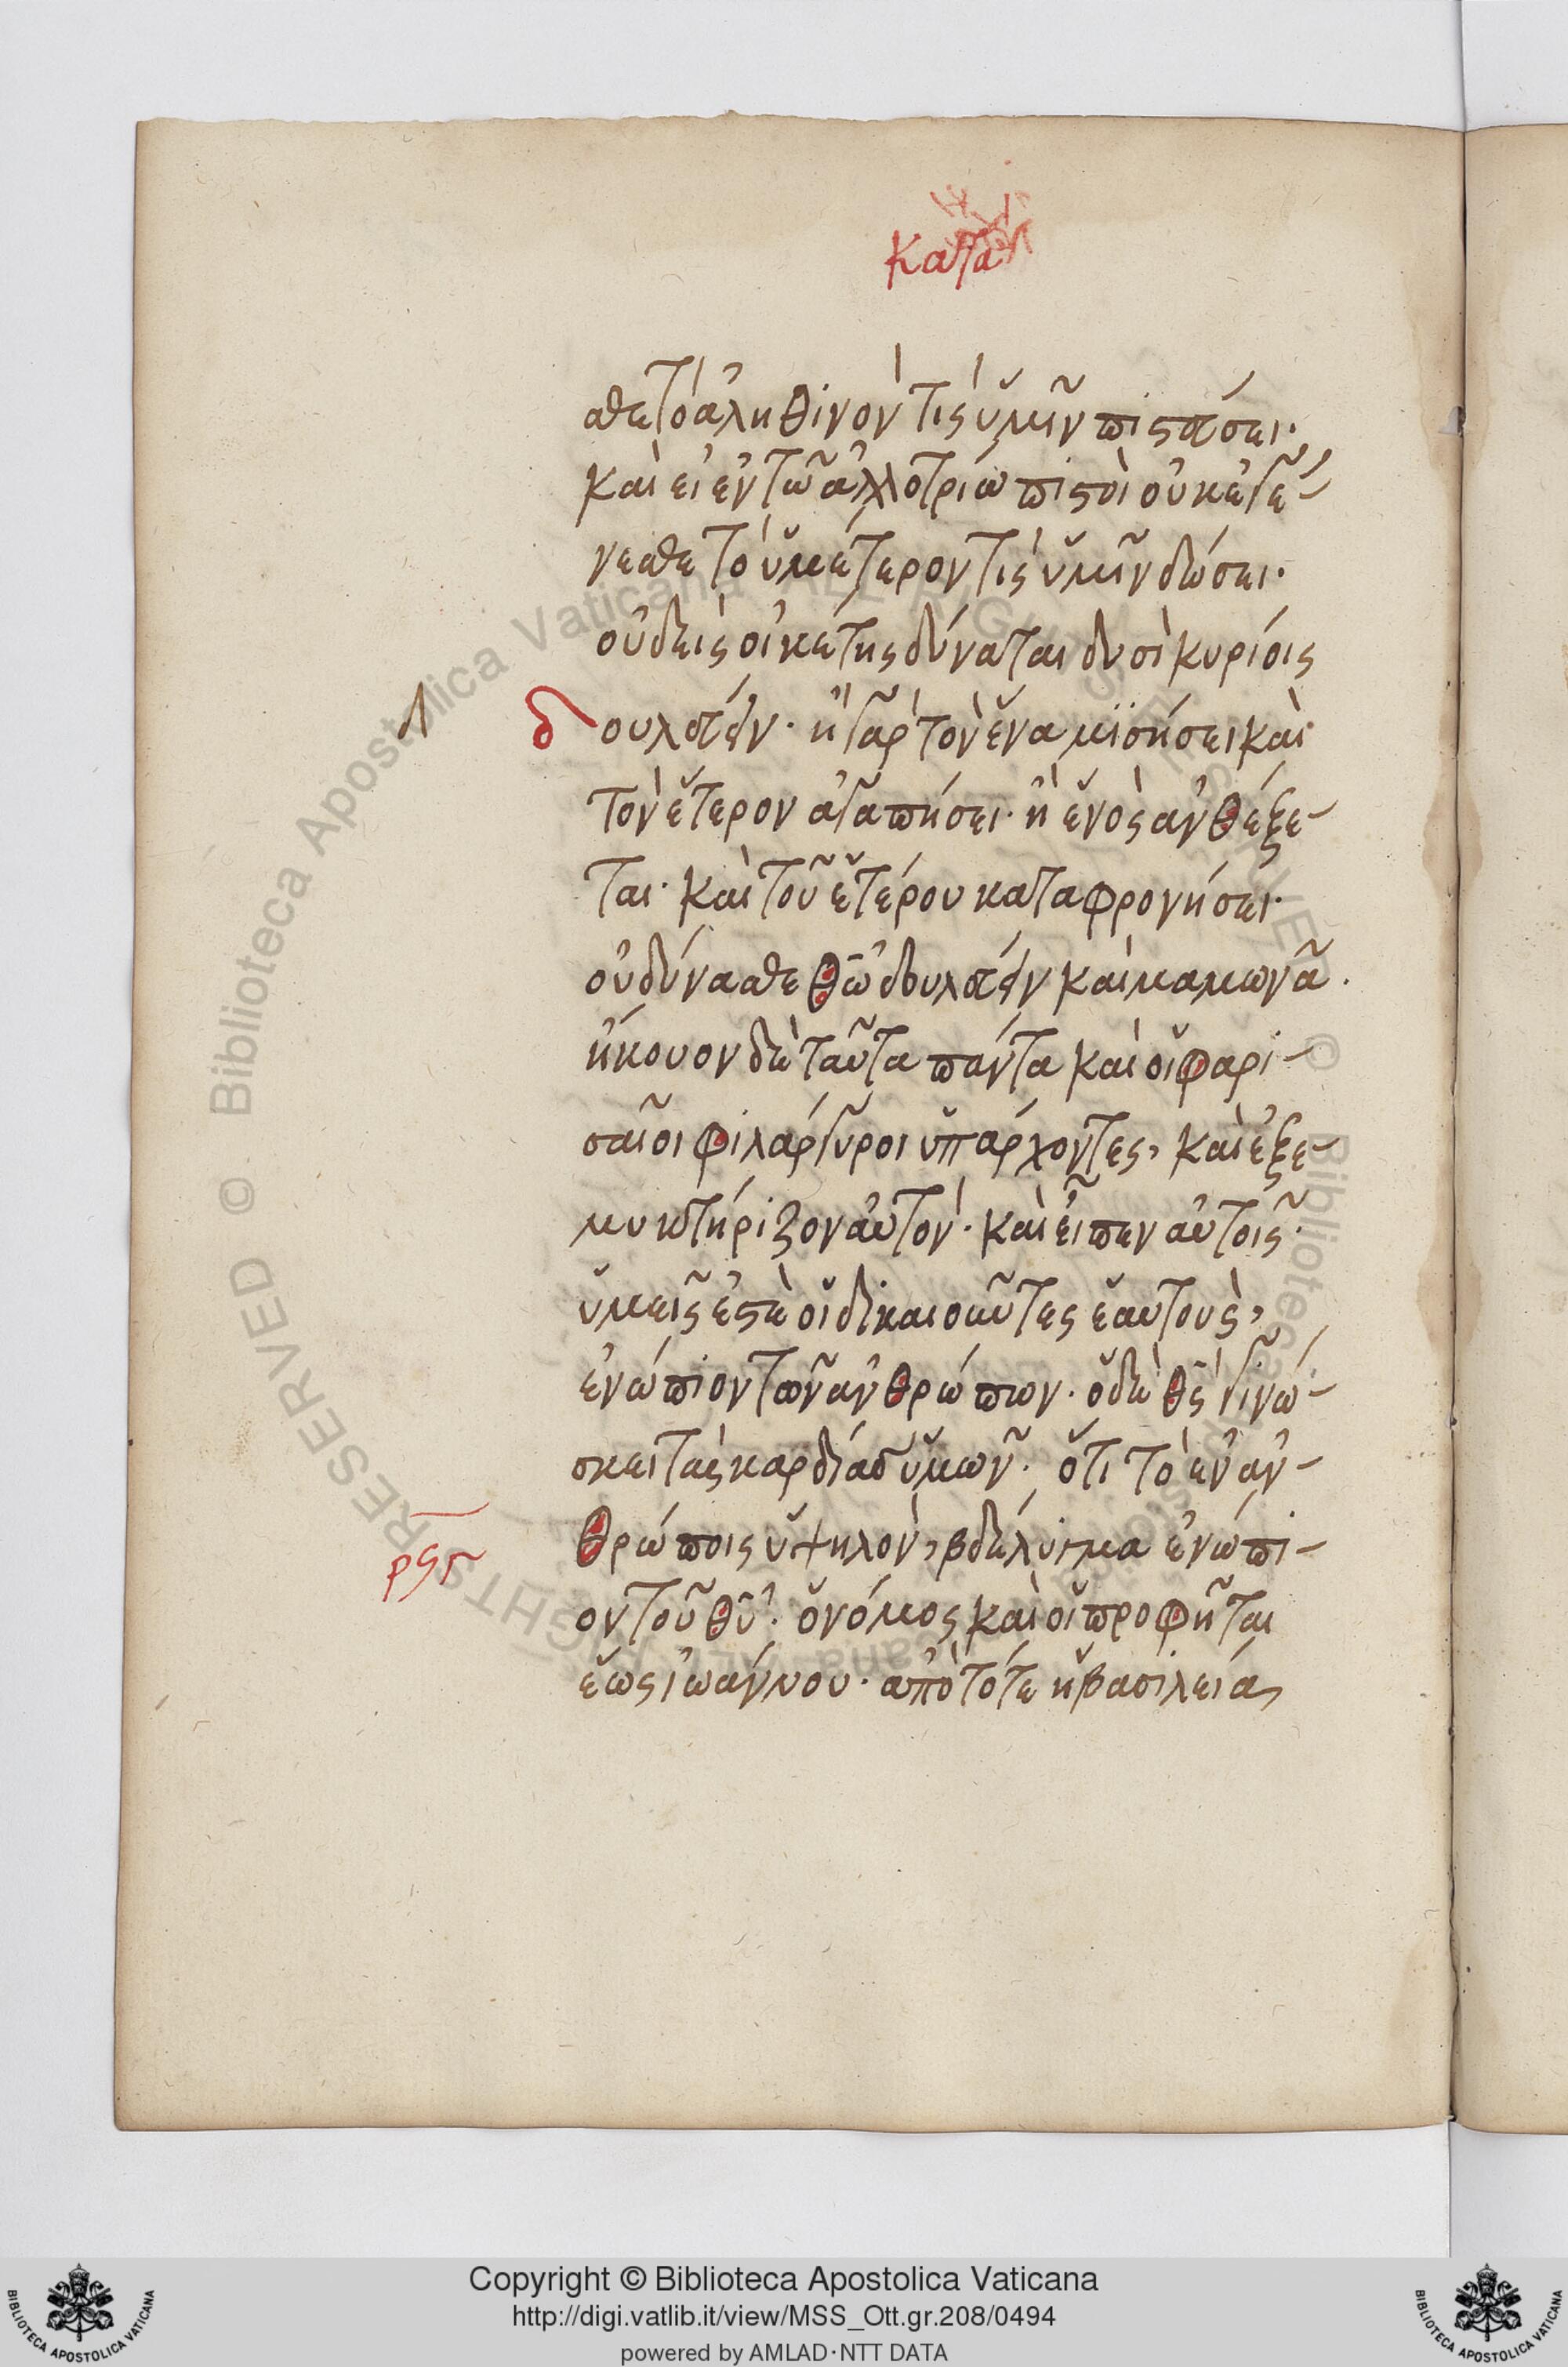 κατὰ
σθε τὸ ἀληθινὸν τίς ὑμῖν πιστεύσει·
καὶ εἰ ἐν τῶ ἀλλοτρίω πιστοὶ οὐκ ἐγέ-
νεσθε τὸ ὑμέτερον τίς ὑμῖν δώσει·
οὐδεὶς οἰκέτης δύναται δυσὶ κυρίοις
δουλεύειν· ἢ γὰρ τὸν ἕνα μισήσει καὶ
τὸν ἕτερον ἀγαπήσει· ἢ ἑνὸς ἀνθέξε-
ται· καὶ τοῦ ἑτέρου καταφρονήσει·
οὐ δύνασθε θῶ δουλεύειν καὶ μαμωνᾶ.
ἤκουον δὲ ταῦτα πάντα καὶ οἱ φαρι-
σαῖοι φιλάργυροι ὑπάρχοντες, καὶ ἐξε-
μυκτήριζον αὐτόν· καὶ εἶπεν αὐτοῖς·
ὑμεῖς ἐστὲ οἱ δικαιοῦντες ἑαυτοὺς,
ἐνώπιον τῶν ἀνθρώπων. ὁ δὲ θς γινώ-
σκει τὰς καρδίας ὑμῶν. ὅτι τὸ ἐν ἀν-
θρώποις ὑψηλὸν, βδέλυγμα ἐνώπι-
ρϟγ
ον τοῦ θῦ. ὁ νόμος καὶ οἱ προφῆται
ἕως ἰωάννου· ἀπὸ τότε ἡ βασιλεία
Copyright © Biblioteca Apostolica Vaticana
http://digi.vatlib.it/view/MSS_Ott.gr.208/0494
powered by AMLAD·NTT DATA
BIBLIOTECA APOSTOLICA VATICANA
BIBLIOTECA APOSTOLICA VATICANA